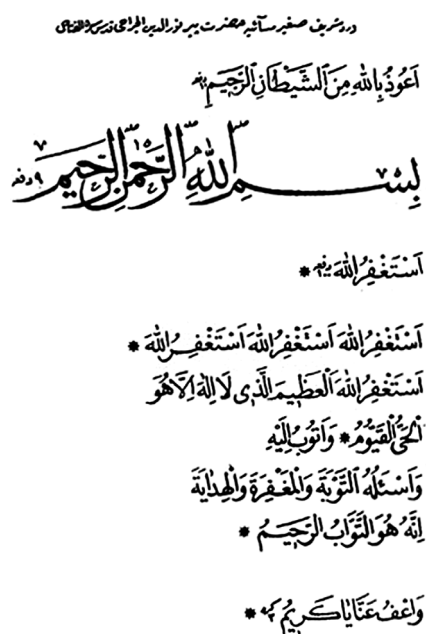 ورد شريف صغير مسائيه حضرت پير نور الدين الجراحى قدس سره
اَعُوذُ بِاللهِ مِنَ الشَّيْطَانِ الرَّجِيمِ
بِسْمِ اللهِ الرَّحْمٰنِ الرَّحِيمِ ٩ دفعه
اَسْتَغْفِرُ اللهَ دفعه *
اَسْتَغْفِرُ اللهَ اَسْتَغْفِرُ اللهَ اَسْتَغْفِرُ اللهَ *
اَسْتَغْفِرُ اللهَ الْعَظِيمَ الَّذِى لَا اِلٰهَ اِلَّا هُوَ
الْحَىُّ الْقَيُّومُ * وَاَتُوبُ اِلَيْهِ
وَاَسْئَلُهُ التَّوْبَةَ وَالْمَغْفِرَةَ وَالْهِدَايَةَ
اِنَّهُ هُوَ التَّوَّابُ الرَّحِيمُ *
وَاعْفُ عَنَّا يَا كَرِيمُ *